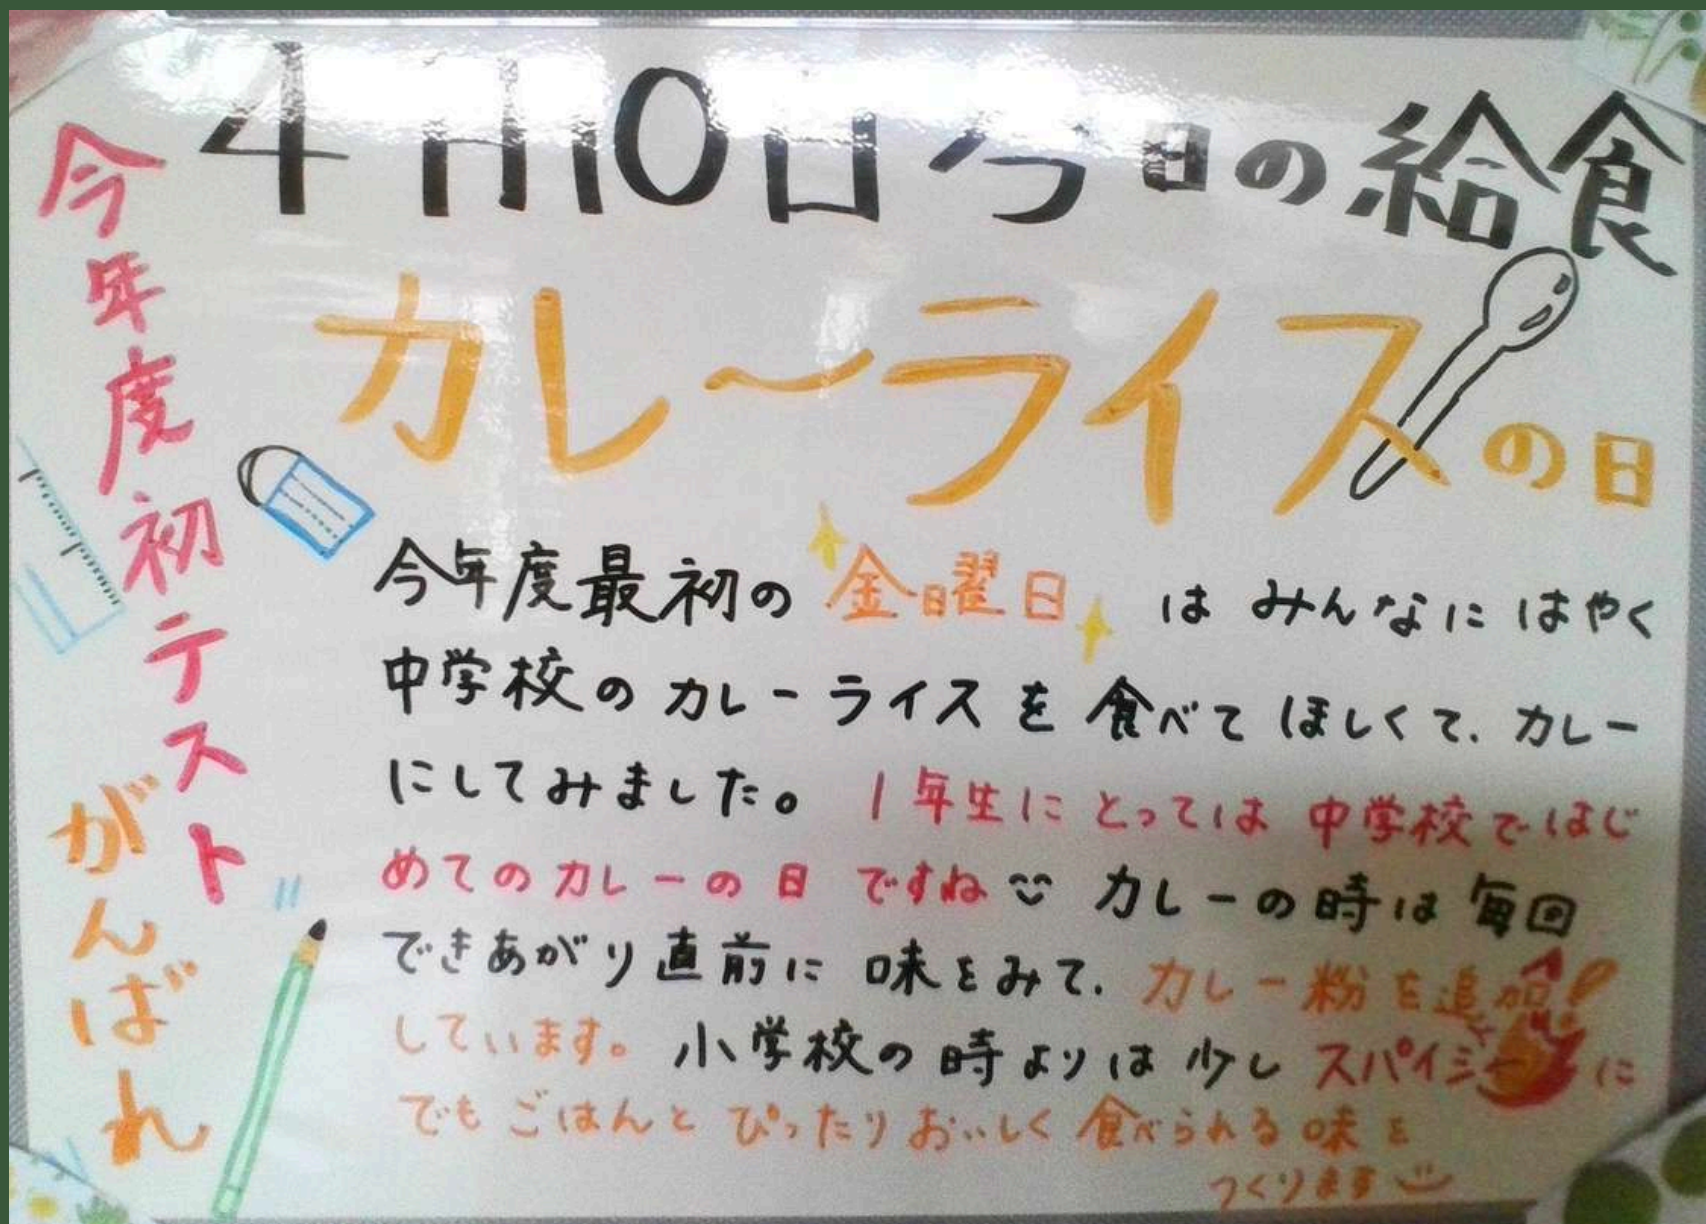 4月10日今日の給食
カレーライスの日
今年度初テスト
がんばれ
今年度最初の金曜日はみんなにはやく
中学校のカレーライスを食べてほしくて、カレー
にしてみました。1年生にとっては中学校ではじ
めてのカレーの日ですね カレーの時は毎回
できあがり直前に味をみて、カレー粉を追加!
しています。小学校の時よりは少しスパイシーに
でもごはんとぴったりおいしく食べられる味を
つくります